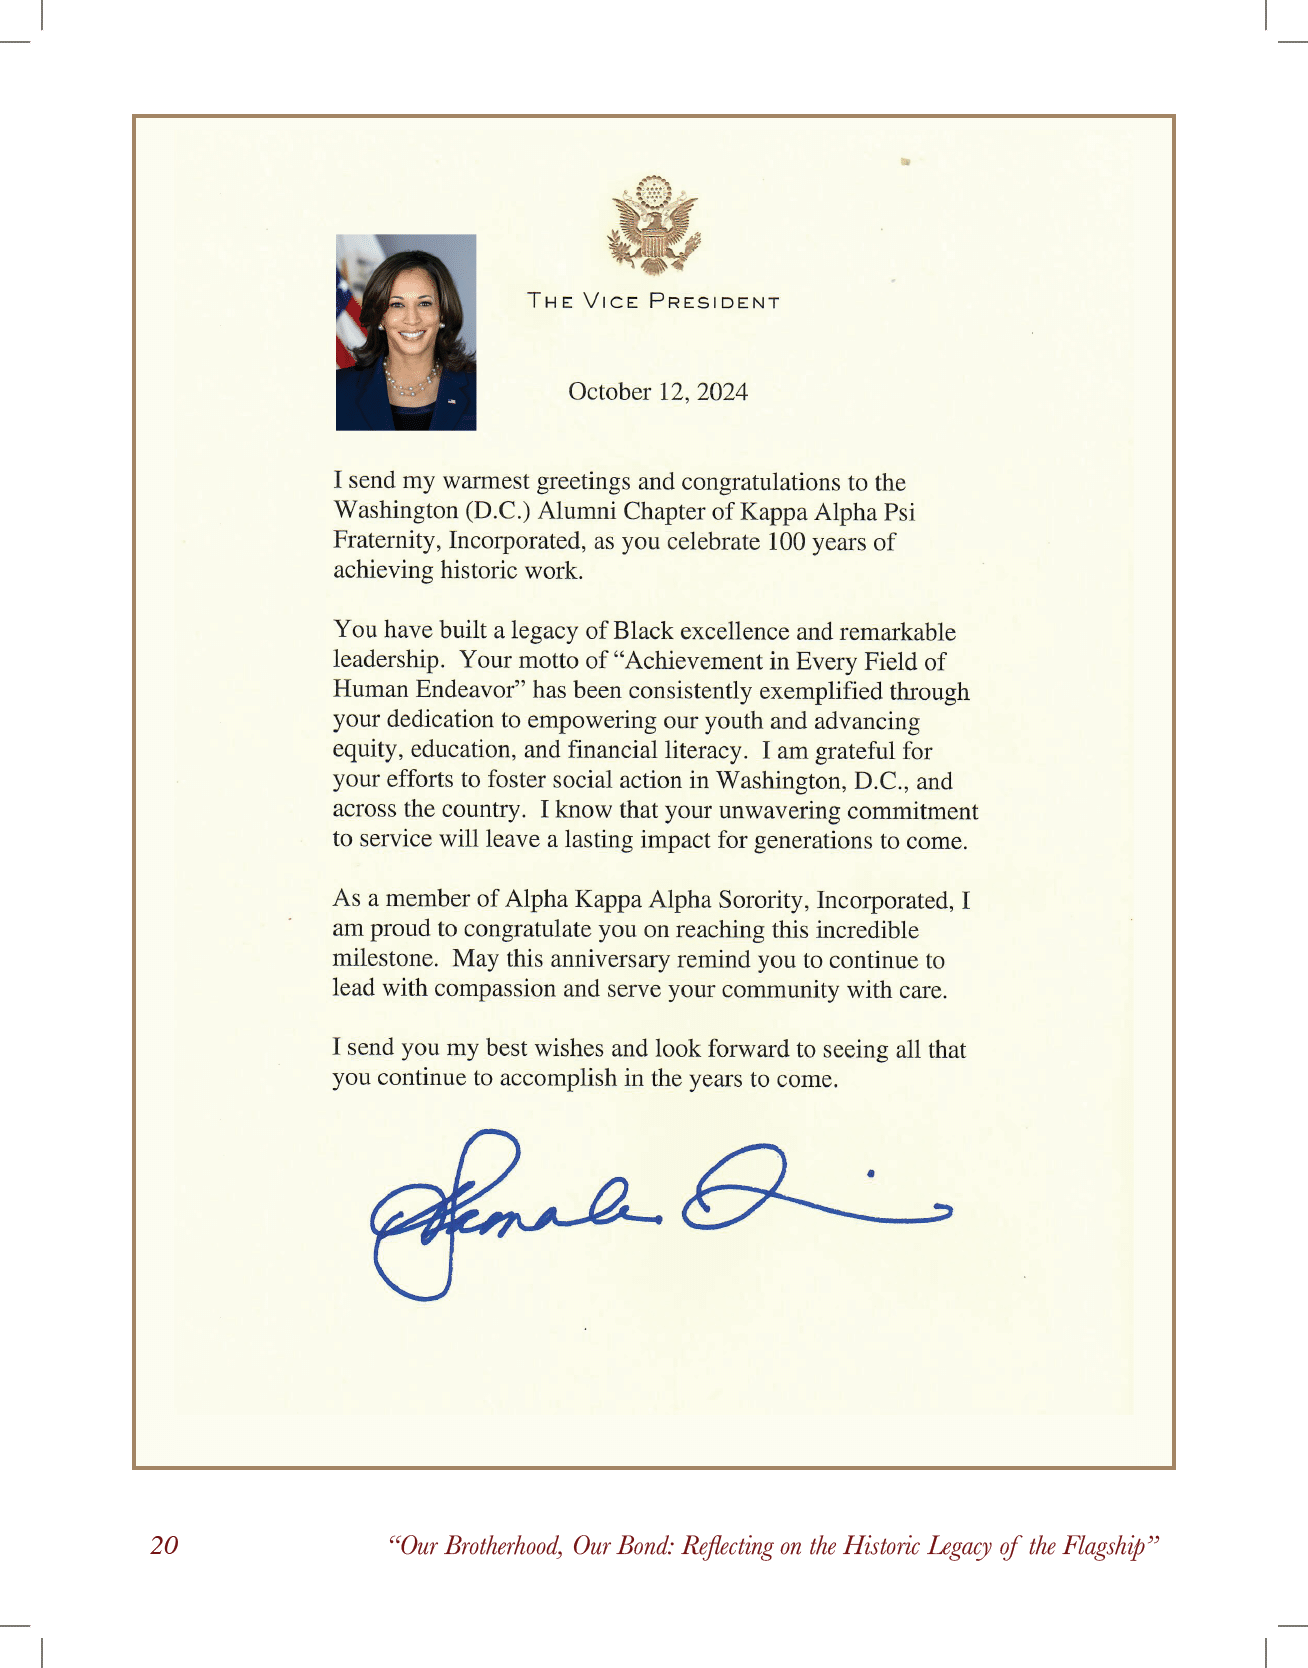 THE VICE PRESIDENT
October 12, 2024
I send my warmest greetings and congratulations to the
Washington (D.C.) Alumni Chapter of Kappa Alpha Psi
Fraternity, Incorporated, as you celebrate 100 years of
achieving historic work.
You have built a legacy of Black excellence and remarkable
leadership.  Your motto of “Achievement in Every Field of
Human Endeavor” has been consistently exemplified through
your dedication to empowering our youth and advancing
equity, education, and financial literacy.  I am grateful for
your efforts to foster social action in Washington, D.C., and
across the country.  I know that your unwavering commitment
to service will leave a lasting impact for generations to come.
As a member of Alpha Kappa Alpha Sorority, Incorporated, I
am proud to congratulate you on reaching this incredible
milestone.  May this anniversary remind you to continue to
lead with compassion and serve your community with care.
I send you my best wishes and look forward to seeing all that
you continue to accomplish in the years to come.
Kamala
20 “Our Brotherhood, Our Bond: Reflecting on the Historic Legacy of the Flagship”